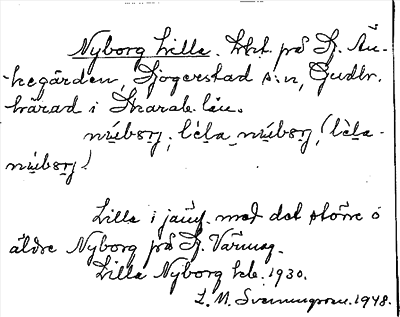 Nyborg Lilla. Lht. på Sj. Än-
kegården, Sjogerstad s:n, Gudhr.
härad i Skarab. län.
nýbɔrj, lèla nýbɔrj, (lèla
nýbɔrj)
Lilla i jämf. med det större o
äldre Nyborg på Sj.
Lilla Nyborg keb. 1930.
L. M. Svenungsson. 1948.